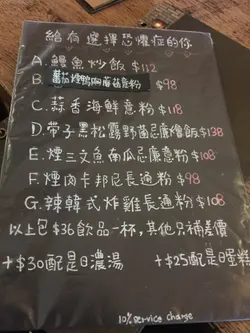 給有選擇恐懼症的你
A. 鰻魚炒飯 $112
B 蕃茄煙鴨胸蘑菇意粉 $98
C. 蒜香海鮮意粉 $118
D. 帶子黑松露野菌忌廉燴飯 $138
E. 煙三文魚南瓜忌廉意粉 $108
F. 煙肉卡邦尼長通粉 $98
G. 辣韓式炸雞長通粉 $108
以上包$36飲品一杯,其他只補差價
+$30配是日濃湯 +$25配是日蛋糕
10% service charge